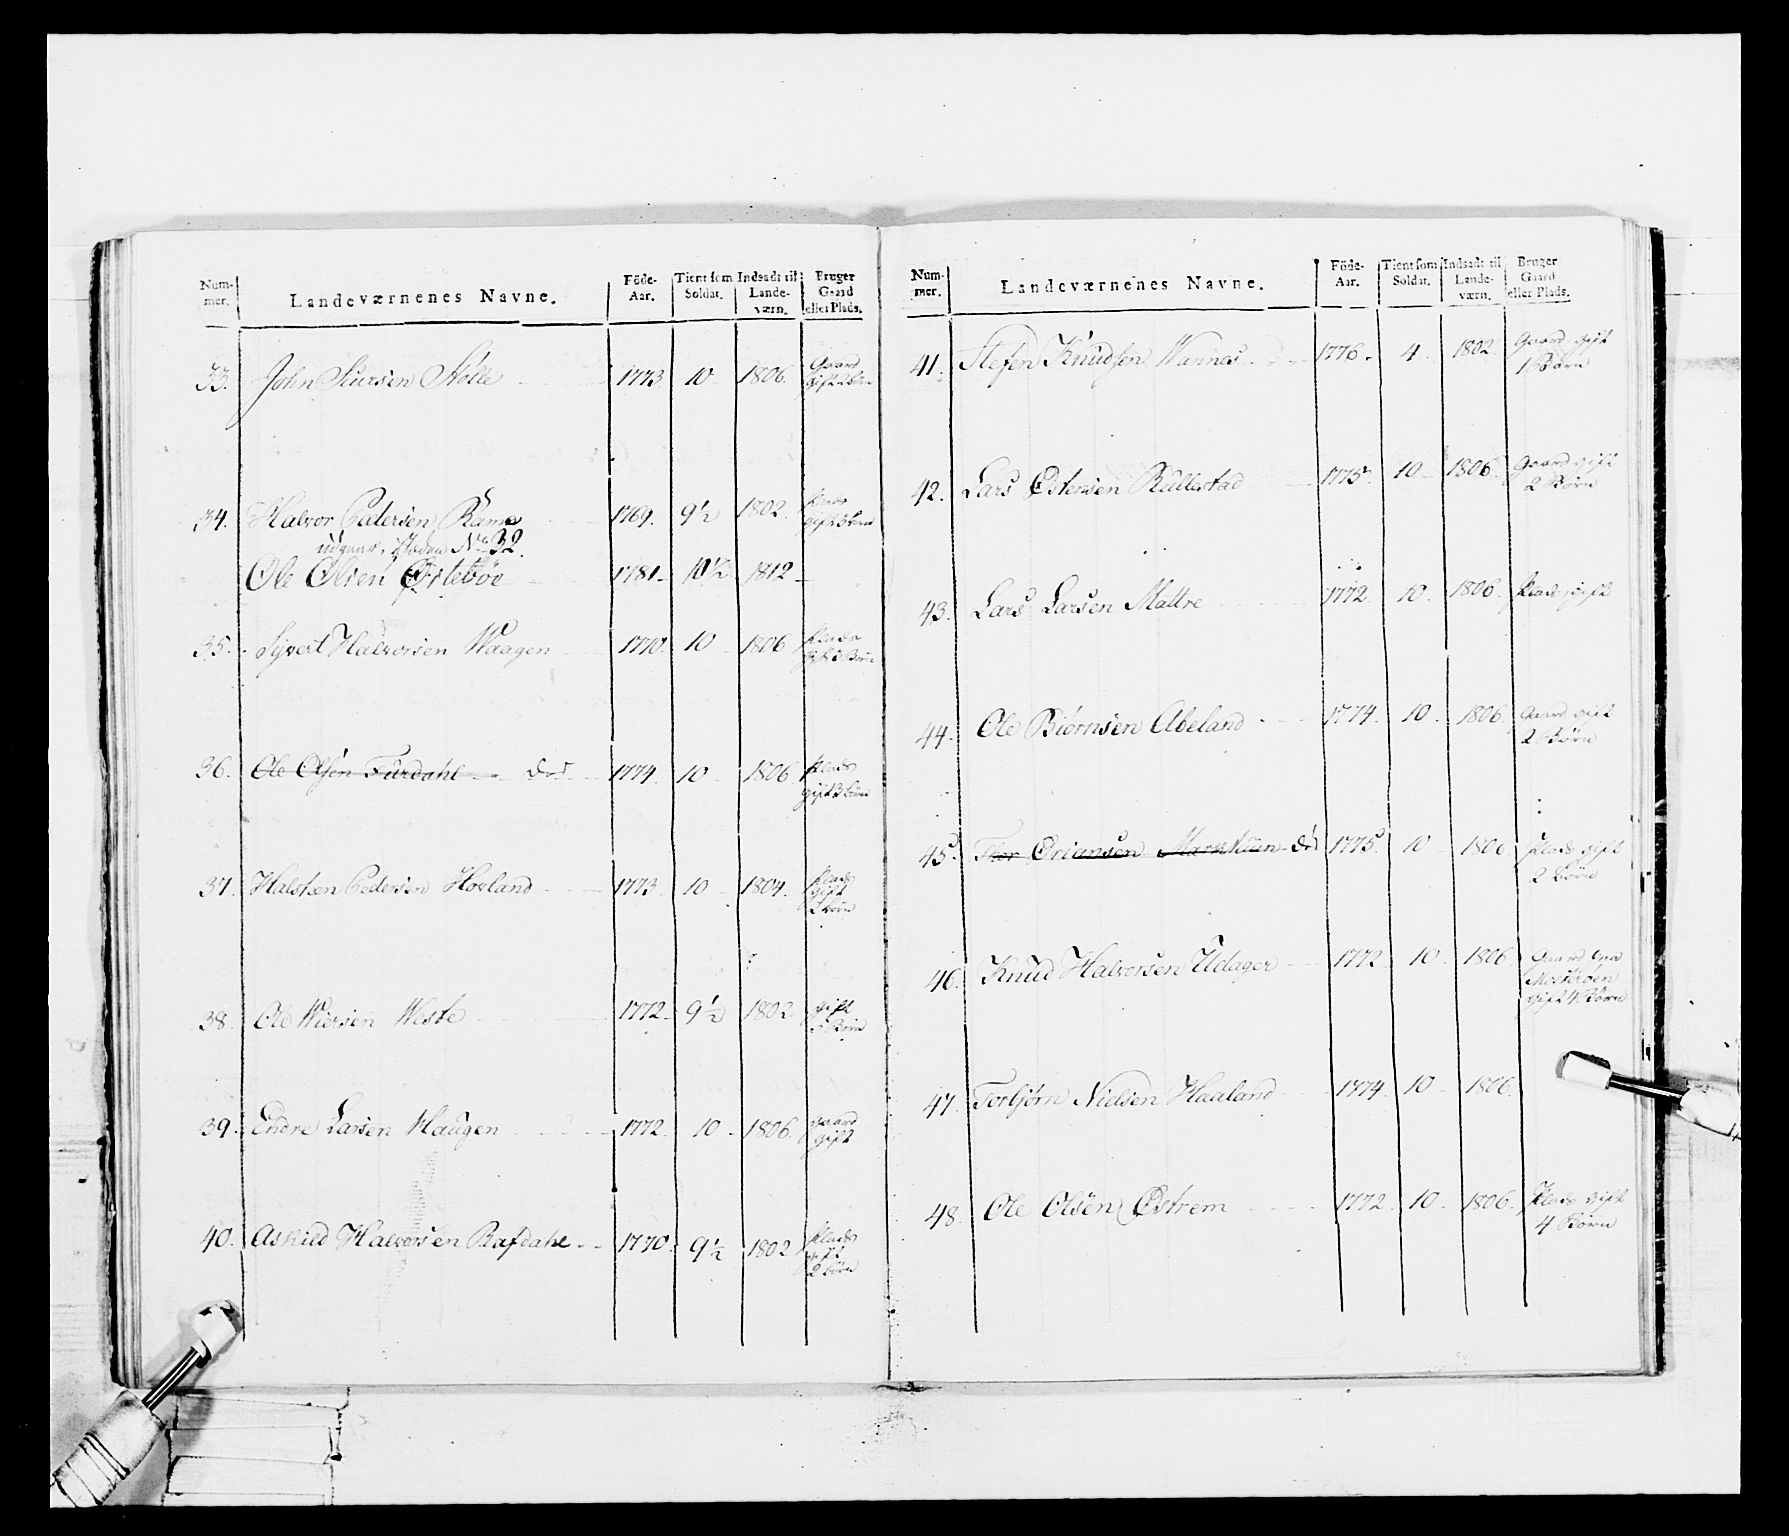 Num-
mer.
Landeværnenes Navne.
Föde-
Aar.
Tient som
Soldat.
Indsadt til
Lande-
værn.
Bruger
Gaard
eller Plads.
33. John Siursen Stölle 1773 10 1806. Gaard
Gift 2 Börn
34. Halvor Pedersen Rame 1769. 9½ 1802. Plads
gift 3 Börn
udgaar, No 32.
Ole Olsen Örteböe 1781 10½ 1812
35. Syvert Halvorsen Waagen 1770. 10 1806 Plads
gift 3 Börn
36. Ole Olsen Furdahl död 1774. 10 1806 Plads
gift 3 börn
37. Halsten Pedersen Hovland 1773 10 1804. Plads
Gift
börn
38. Ole Wiersen Weste 1772 9½ 1802 gift
3 Börn
39. Endre Larsen Haugen 1772. 10 1806. gaard
gift
40. Askild Halvorsen Rafdahl 1770. 9½ 1802 Plads
gift
2 börn
Num-
mer.
Landeværnenes Navne.
Föde-
Aar.
Tient som
Soldat.
Indsadt til
Lande-
værn.
Bruger
Gaard
eller Plads.
41. Stefen Knudsen Wannes 1776. 4. 1802 Gaard gift
1 Barn
42. Lars Östensen Rullestad 1775 10 1806. Gaard gift
2 Börn
43. Lars Larsen Mattre 1772 10. 1806. Plads gift
44. Ole Biörnsen Abeland 1774. 10. 1806. Gaard gift
2 Börn
45. Thor Öriansen Markhun Död 1775. 10 1806. Plads gift
2 börn
46. Knud Halvorsen Udager 1772 10 1806. Gaard paa
Mosteröen
gift 4 Börn
47. Torbjörn Nielsen Haaland 1774. 10 1806.
48. Ole Olsen Östrem 1772. 10 1806. Plads gift
4 Börn